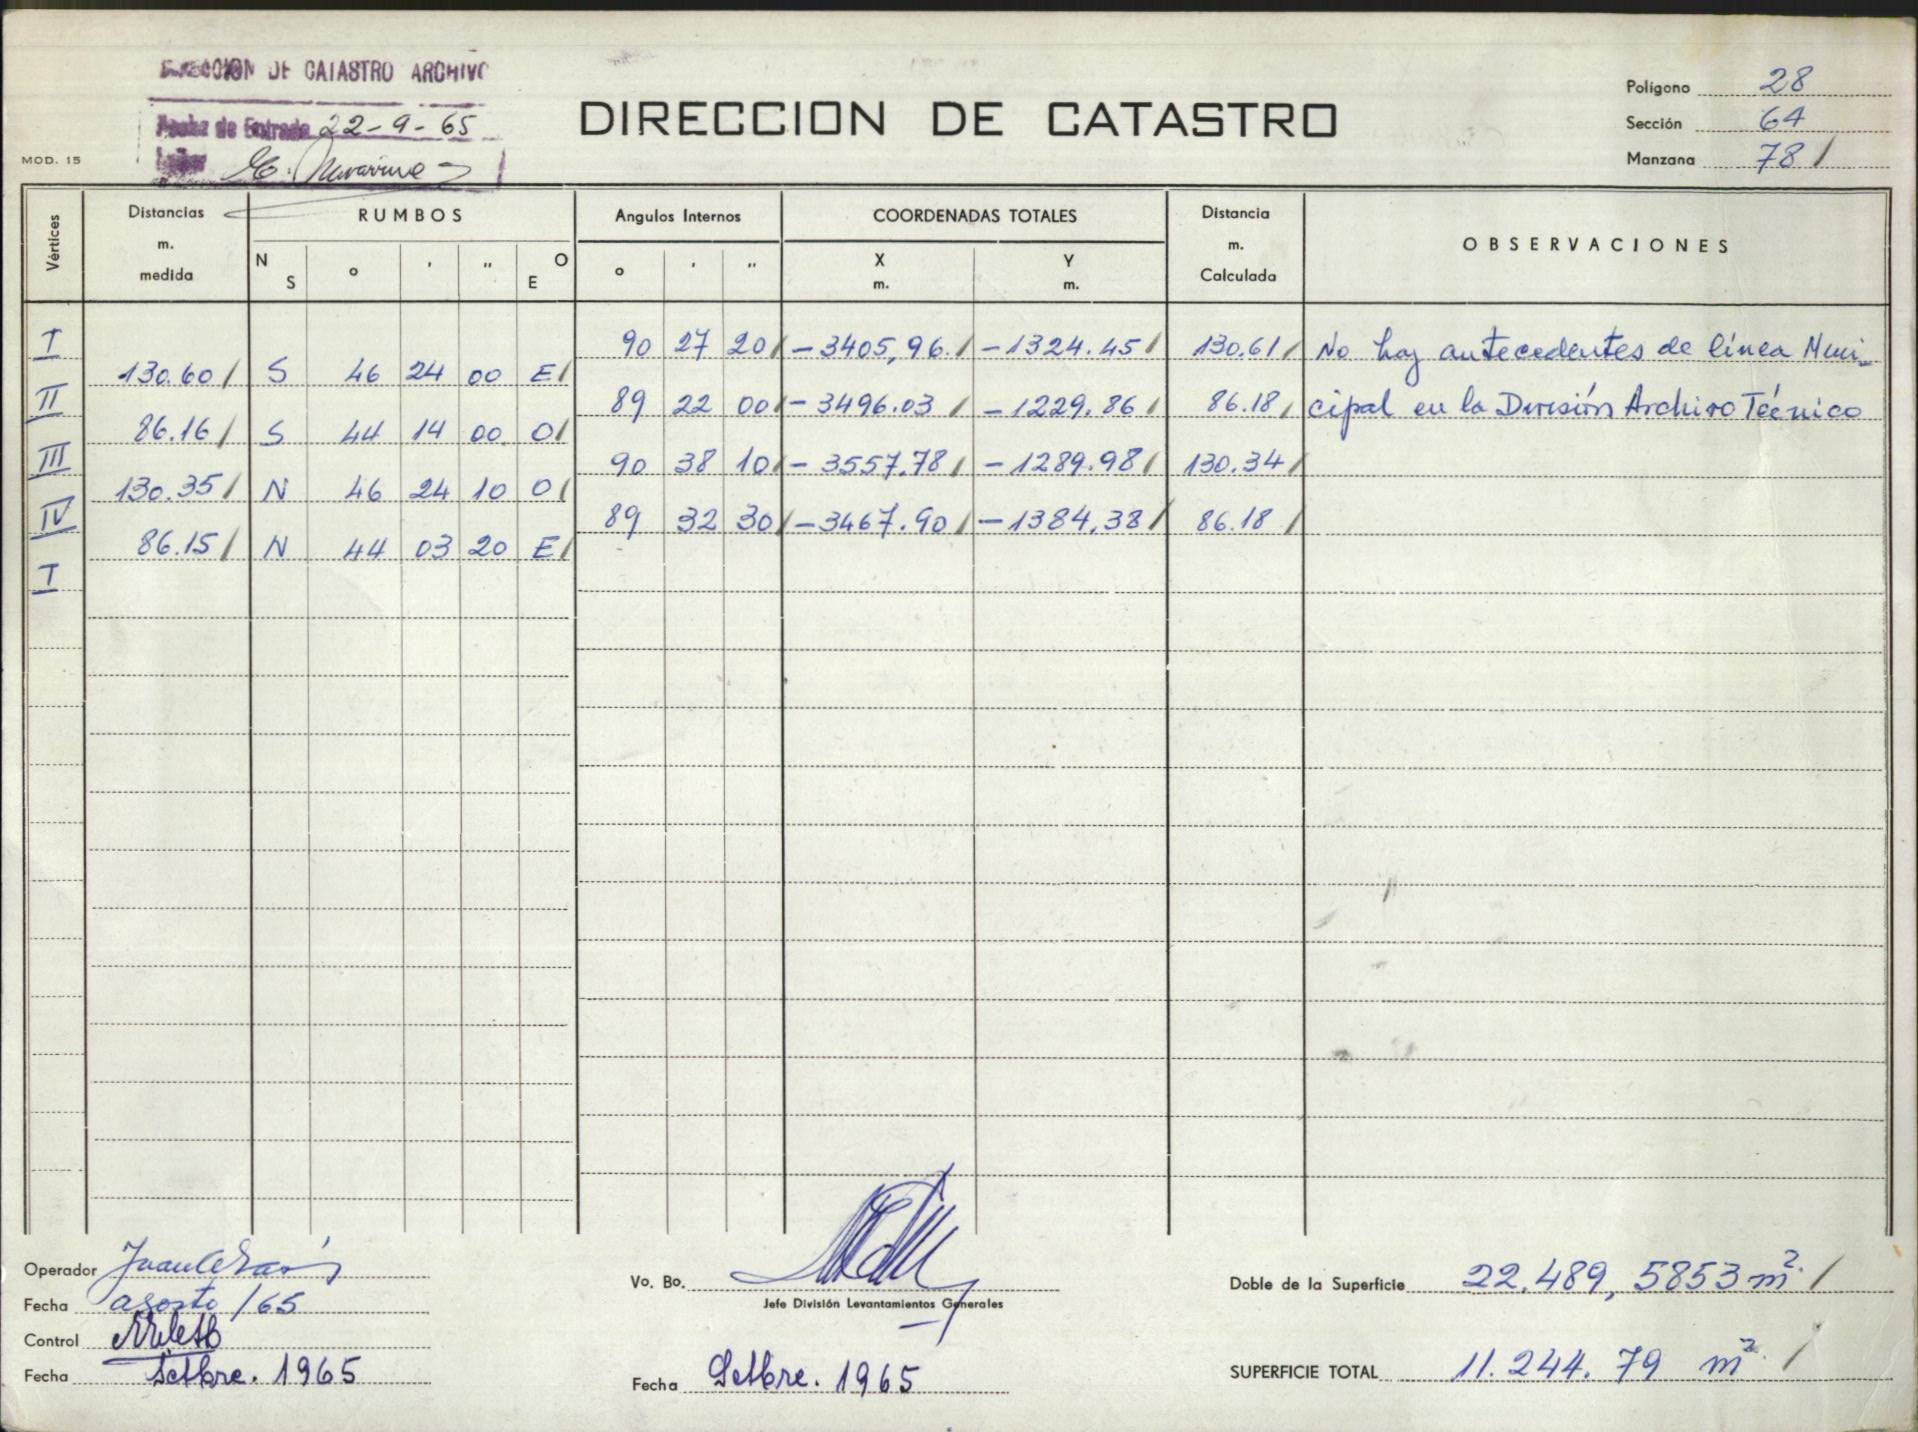 DIRECCION DE CATASTRO ARCHIVO
Fecha de Entrada 22-9-65
MOD. 15
DIRECCION DE CATASTRO
Polígono 28
Sección 64
Manzana 78 /
Vértices | Distancias m. medida | RUMBOS | Angulos Internos | COORDENADAS TOTALES | Distancia m. Calculada | OBSERVACIONES
N S | o | ' | " | O E | o | ' | " | X m. | Y m.
I | 90 27 20 / | -3405,96. / | -1324.45 / | 130.61 / | No hay antecedentes de línea Muni-
130.60 / | S 46 24 00 E /
II | 89 22 00 / | -3496.03 / | -1229.86 / | 86.18 / | cipal en la División Archivo Técnico
86.16 / | S 44 14 00 O /
III | 90 38 10 / | -3557.78 / | -1289.98 / | 130.34 /
130.35 / | N 46 24 10 O /
IV | 89 32 30 / | -3467.90 / | -1384,38 / | 86.18 /
86.15 / | N 44 03 20 E /
I
Operador
Fecha agosto /65
Control
Fecha Setbre. 1965
Vo. Bo.
Jefe División Levantamientos Generales
Fecha Setbre. 1965
Doble de la Superficie 22.489,5853 m². /
SUPERFICIE TOTAL 11.244.79 m². /